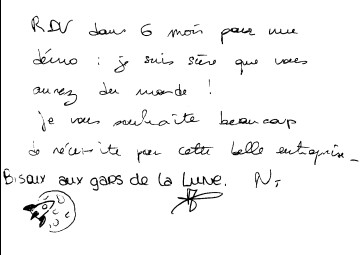 RDV dans 6 mois pour une
démo : je suis sûre que vous
aurez du monde !
Je vous souhaite beaucoup
de réussite pour cette belle entreprise_
Bisoux aux gars de la Lune. N.